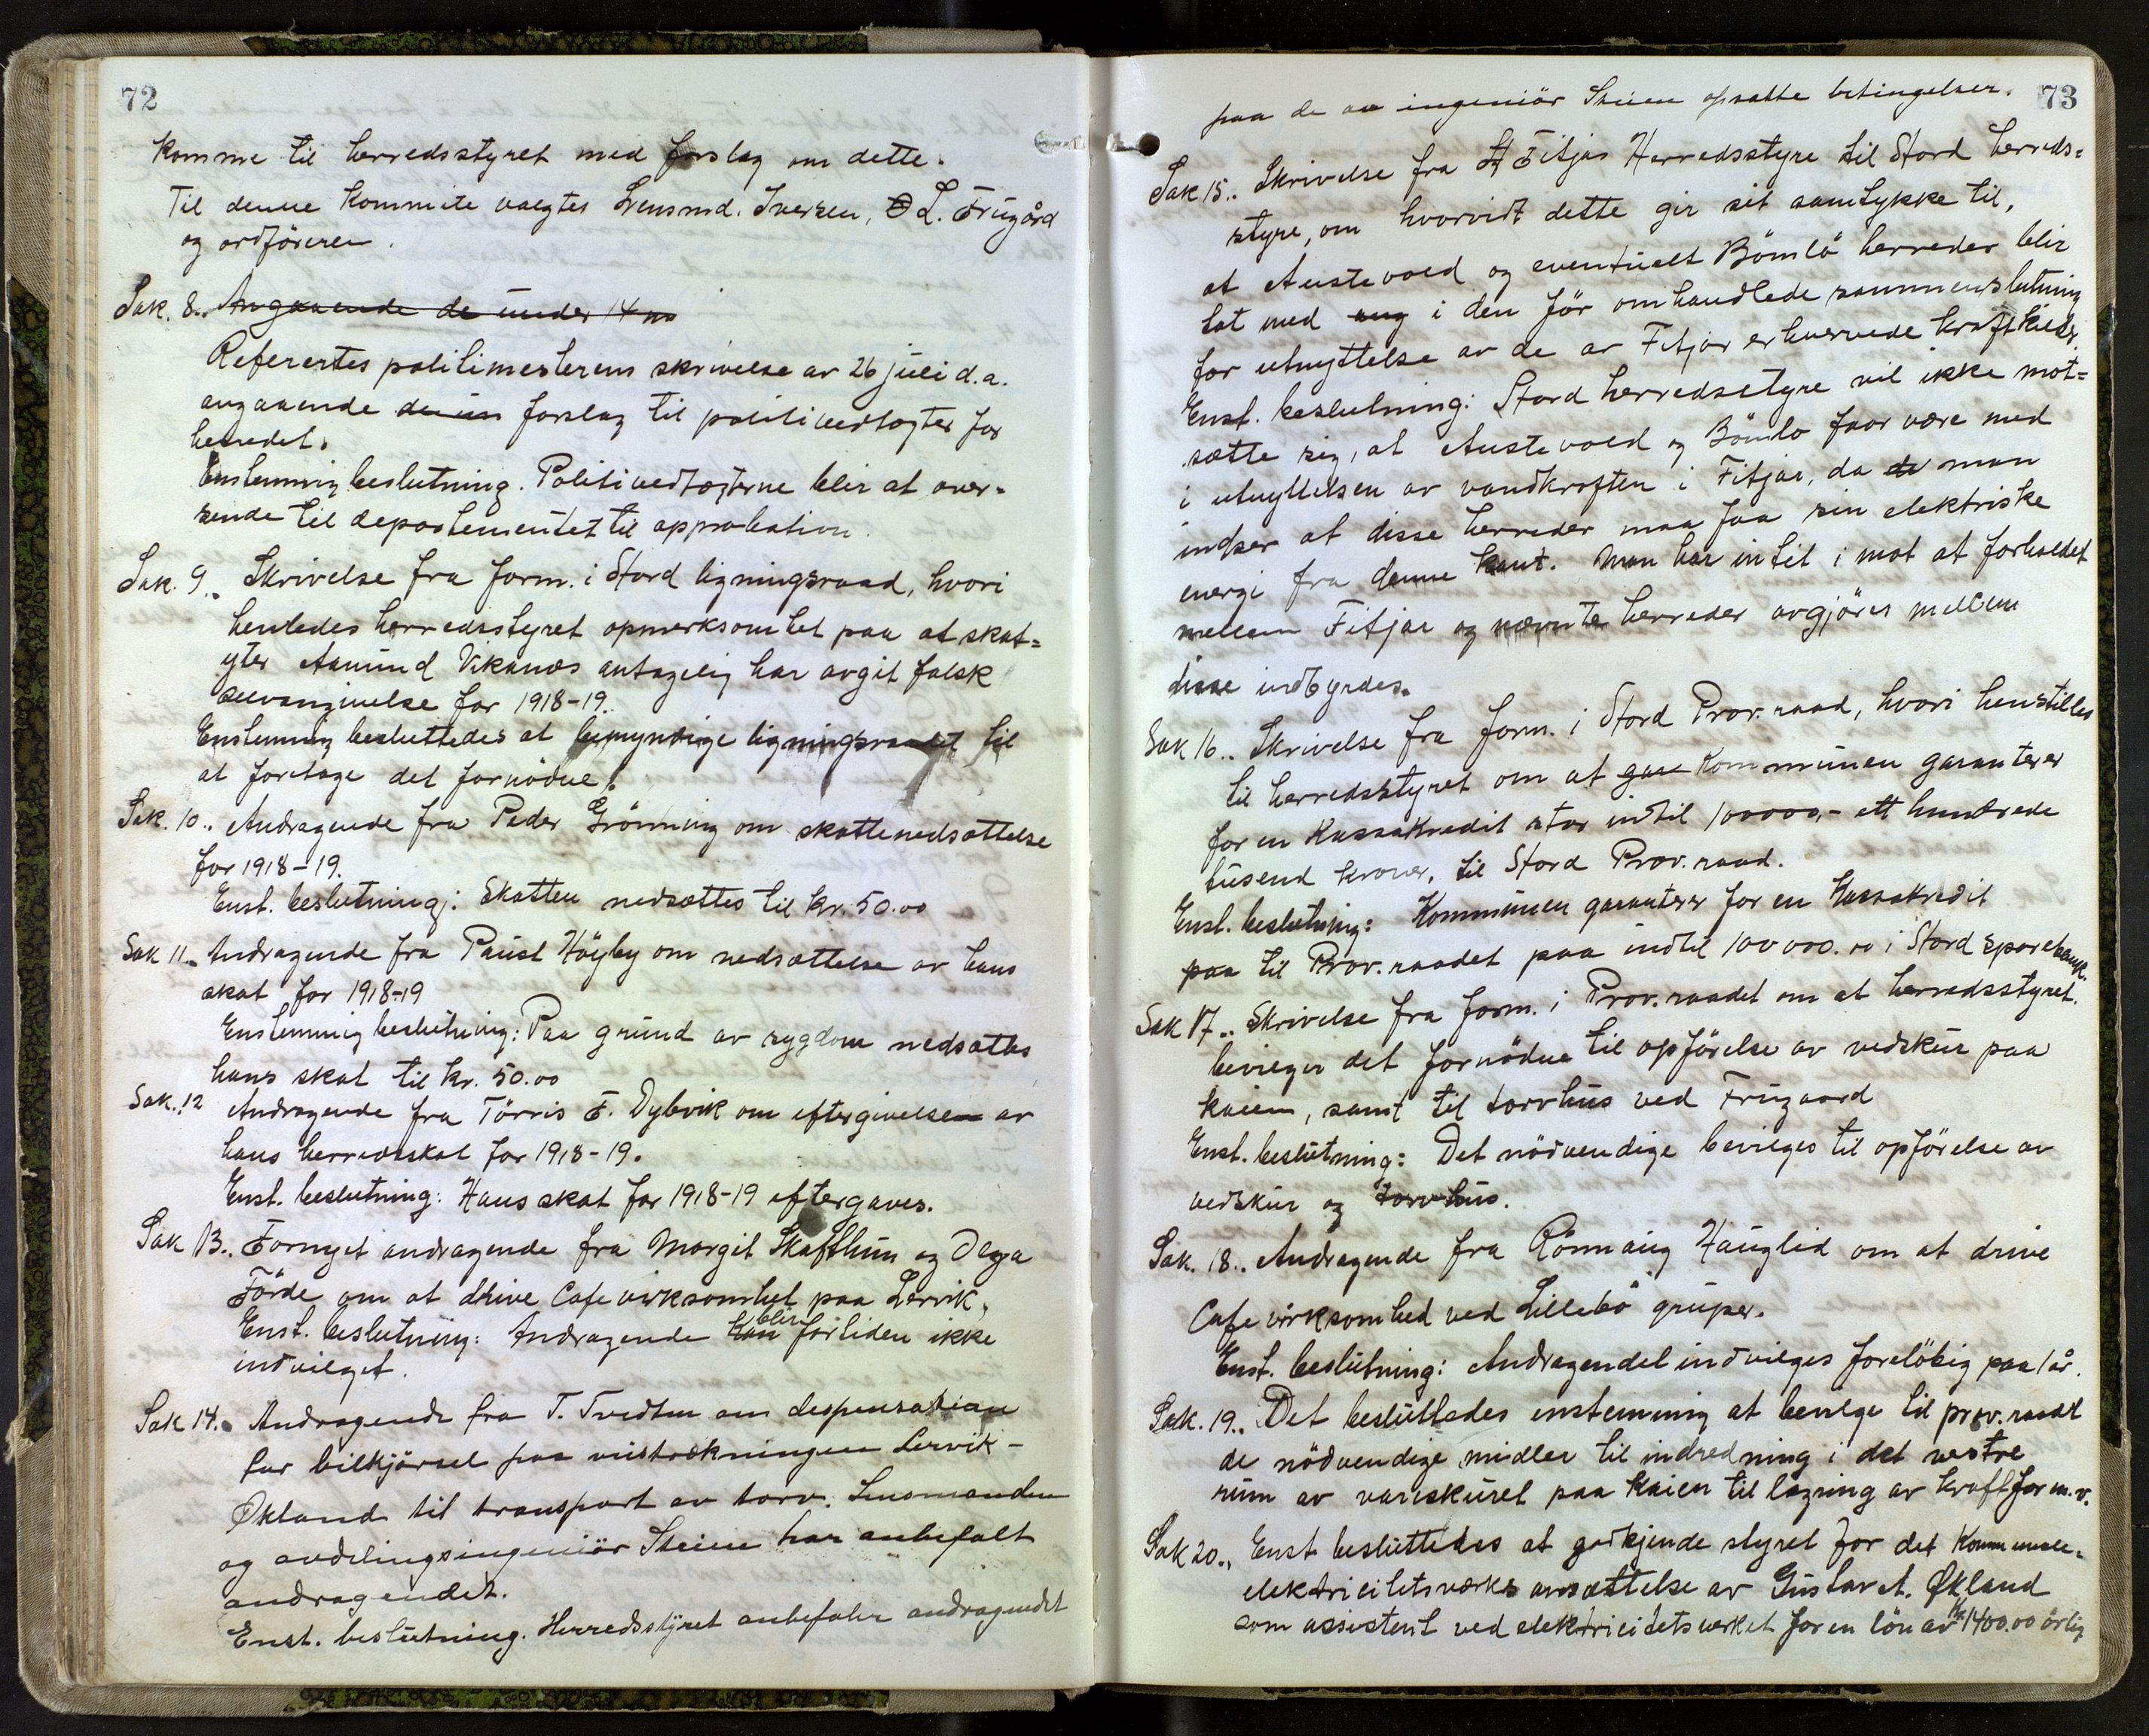 72
komme til herredsstyret med forslag om dette.
Til denne Kommite valgtes Lensmd. Iversen, O L. Frugård
og ordföreren.
Sak. 8.. Angaaende de under 14
Referertes politimesterens skrivelse av 26 juli d.a.
angaaende forslag til politivedtægter for
herredet.
Enstemmig beslutning. Politivedtægterne blir at over-
sende til departementet til approbation.
Sak. 9.. Skrivelse fra form. i Stord ligningsraad, hvori
henledes herredsstyret opmerksomhet paa at skat-
yter Aamund Vikanæs antagelig har avgit falsk
selvangivelse for 1918-19.
Enstemmig besluttedes at bemyndige ligningsraadet til
at foretage det fornödne.
Sak. 10.. Andragende fra Peder Grönning om skattenedsættelse
for 1918-19.
Enst. beslutning: Skatten nedsættes til kr. 50.00
Sak 11.. Andragende fra Paust Höyby om nedsættelse av hans
skat for 1918-19
Enstemmig beslutning: Paa grund av sygdom nedsættes
hans skat til kr. 50.00
Sak. 12 Andragende fra Törris F. Dybvik om eftergivelse av
hans herredsskat for 1918-19.
Enst. beslutning: Hans skat for 1918-19 eftergaves.
Sak 13.. Fornyet andragende fra Margit Skafthun og Olga
Förde om at drive Cafe virksomhet paa Lervik.
Enst. beslutning: Andragende kan blir fortiden ikke
indvilget.
Sak 14.. Andragende fra T. Tvedten om despensation
for bilkjörsel paa veistrækningen Lervik -
Økland til transport av torv. Lensmanden
og avdelingsingeniör Steien har anbefalt
andragendet.
Enst. beslutning. Herredsstyret anbefaler andragendet
73
paa de av ingeniör Steien opsatte betingelser.
Sak 15.. Skrivelse fra Fitjar Herredsstyre til Stord herreds-
styre, om hvorvidt dette gir sit samtykke til,
at Austevold og eventuelt Bömlö herreder blir
tat med i den för omhandlede sammenslutning
for utnyttelse av de av Fitjar erhvervede kraftkilder.
Enst. beslutning: Stord herredsstyre vil ikke mot-
sætte sig, at Austevold og Bömlo faar være med
i utnyttelsen av vandkraften i Fitjar, da de man
indser at disse herreder maa faa sin elektriske
energi fra denne kant. Man har intet i mot at forholdet
mellem Fitjar og nævnte herreder avgjöres mellem
disse indbyrdes.
Sak 16.. Skrivelse fra form. i Stord Prov. raad, hvori henstilles
til herredsstyret om at gara Kommunen garanterer
for en Kassakredit stor indtil 100000,- ett hundrede
tusend kroner, til Stord Prov. raad.
Enst. beslutning: Kommunen garanterer for en Kassakredit
paa til Prov. raadet paa indtil 100 000.00 i Stord Sparebank.
Sak 17.. Skrivelse fra form. i Prov. raadet om at herredsstyret
bevilger det fornödne til opförelse av vedskur paa
kaien, samt til torvhus ved Frugaard
Enst. beslutning: Det nödvendige bevilges til opförelse av
vedskur og torvhus.
Sak. 18.. Andragende fra Rönnaug Hauglid om at drive
Cafe virksomhed ved Lillebö gruper.
Enst. beslutning: Andragendet indvilges foreløbig paa 1 år.
Sak. 19.. Det besluttedes enstemmig at bevilge til prov. raadet
de nödvendige midler til indredning i det vestre
rum av vareskuret paa Kaien til lagring av kraftfor m.v.
Sak 20.. Enst besluttedes at godkjende styret for det Kommunale
elektricitetsværks ansættelse av Gustav A. Økland
som assistent ved elektricitetsverket for en lön av kr. 1400.00 årlig